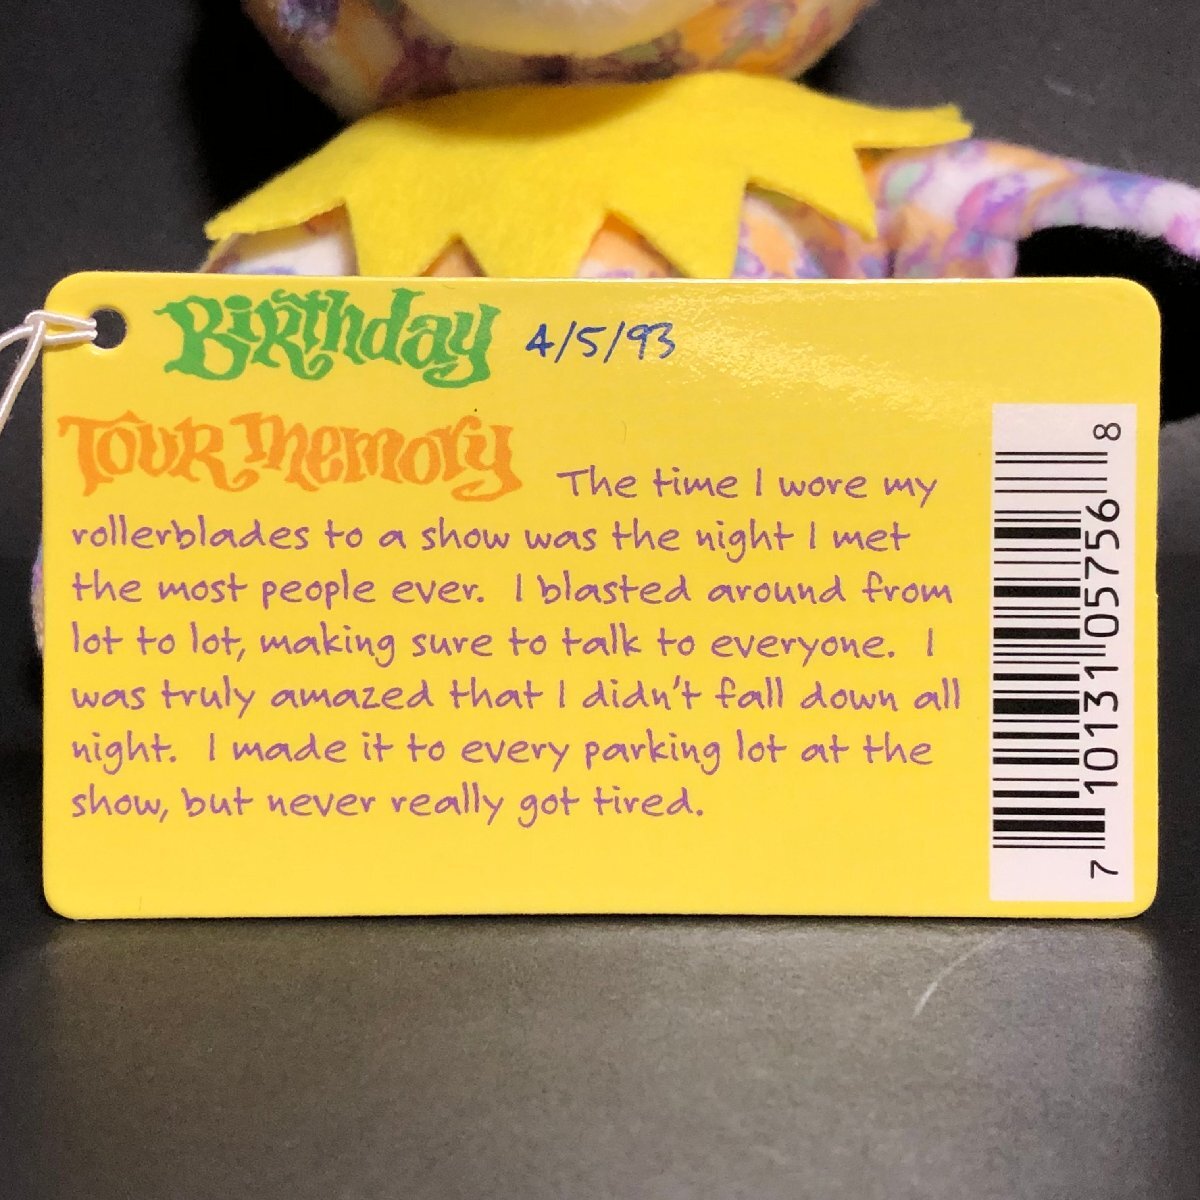 Birthday 4/5/93
Tour Memory The time I wore my
rollerblades to a show was the night I met
the most people ever. I blasted around from
lot to lot, making sure to talk to everyone. I
was truly amazed that I didn't fall down all
night. I made it to every parking lot at the
show, but never really got tired.
7 10131 05756 8